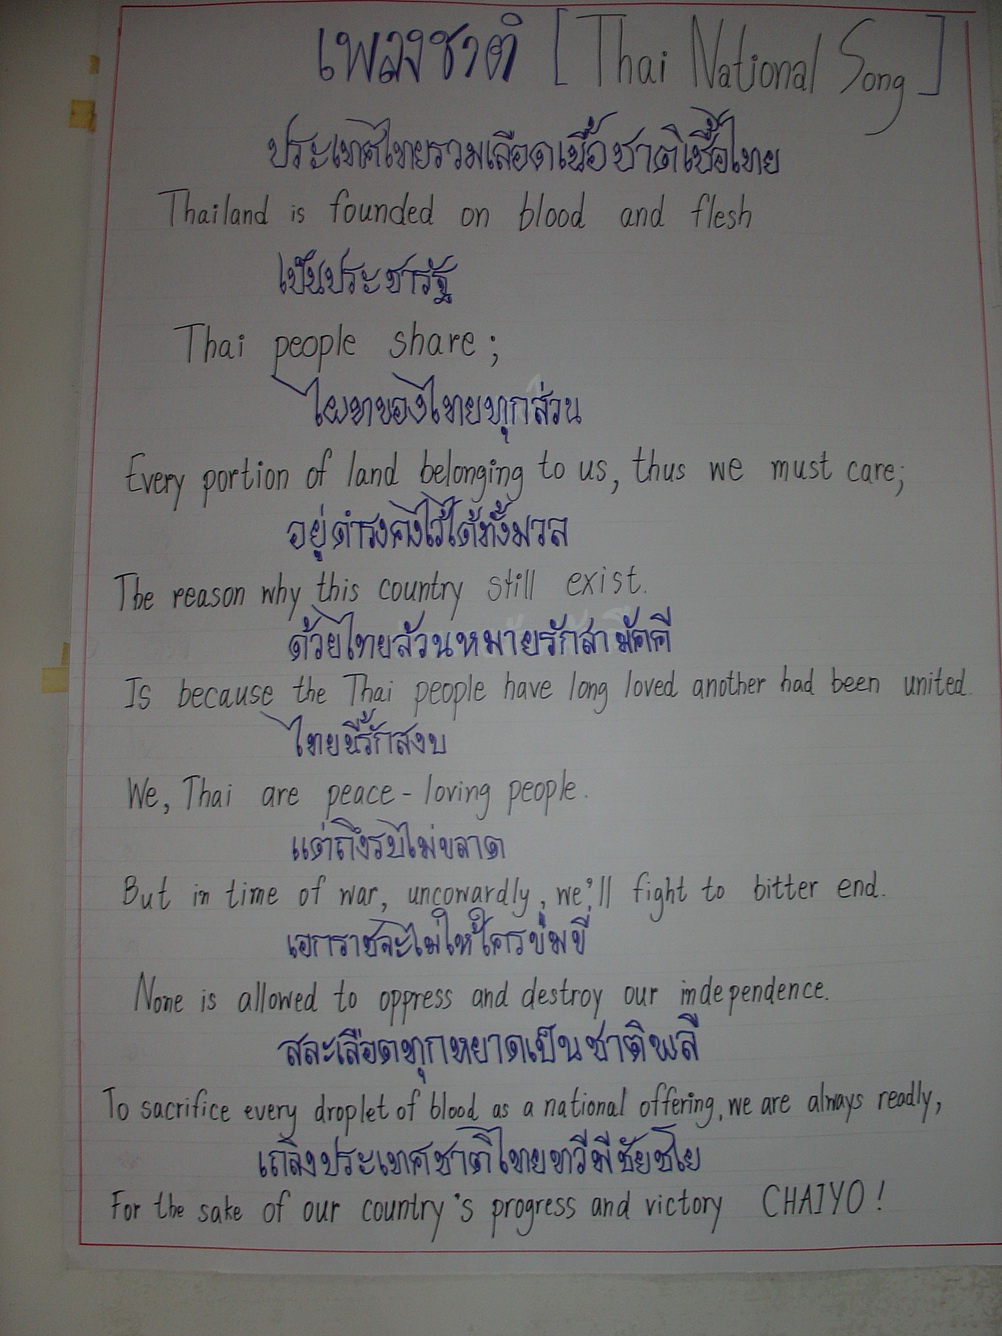 เพลงชาติ [Thai National Song]
ประเทศไทยรวมเลือดเนื้อชาติเชื้อไทย
Thailand is founded on blood and flesh
เป็นประชารัฐ
Thai people share;
ไผทของไทยทุกส่วน
Every portion of land belonging to us, thus we must care;
อยู่ดำรงคงไว้ได้ทั้งมวล
The reason why this country still exist.
ด้วยไทยล้วนหมายรักสามัคคี
Is because the Thai people have long loved another had been united.
ไทยนี้รักสงบ
We, Thai are peace-loving people.
แต่ถึงรบไม่ขลาด
But in time of war, uncowardly, we'll fight to bitter end.
เอกราชจะไม่ให้ใครข่มขี่
None is allowed to oppress and destroy our independence.
สละเลือดทุกหยาดเป็นชาติพลี
To sacrifice every droplet of blood as a national offering, we are always readly,
เถลิงประเทศชาติไทยทวีมีชัยชโย
For the sake of our country's progress and victory CHAIYO!